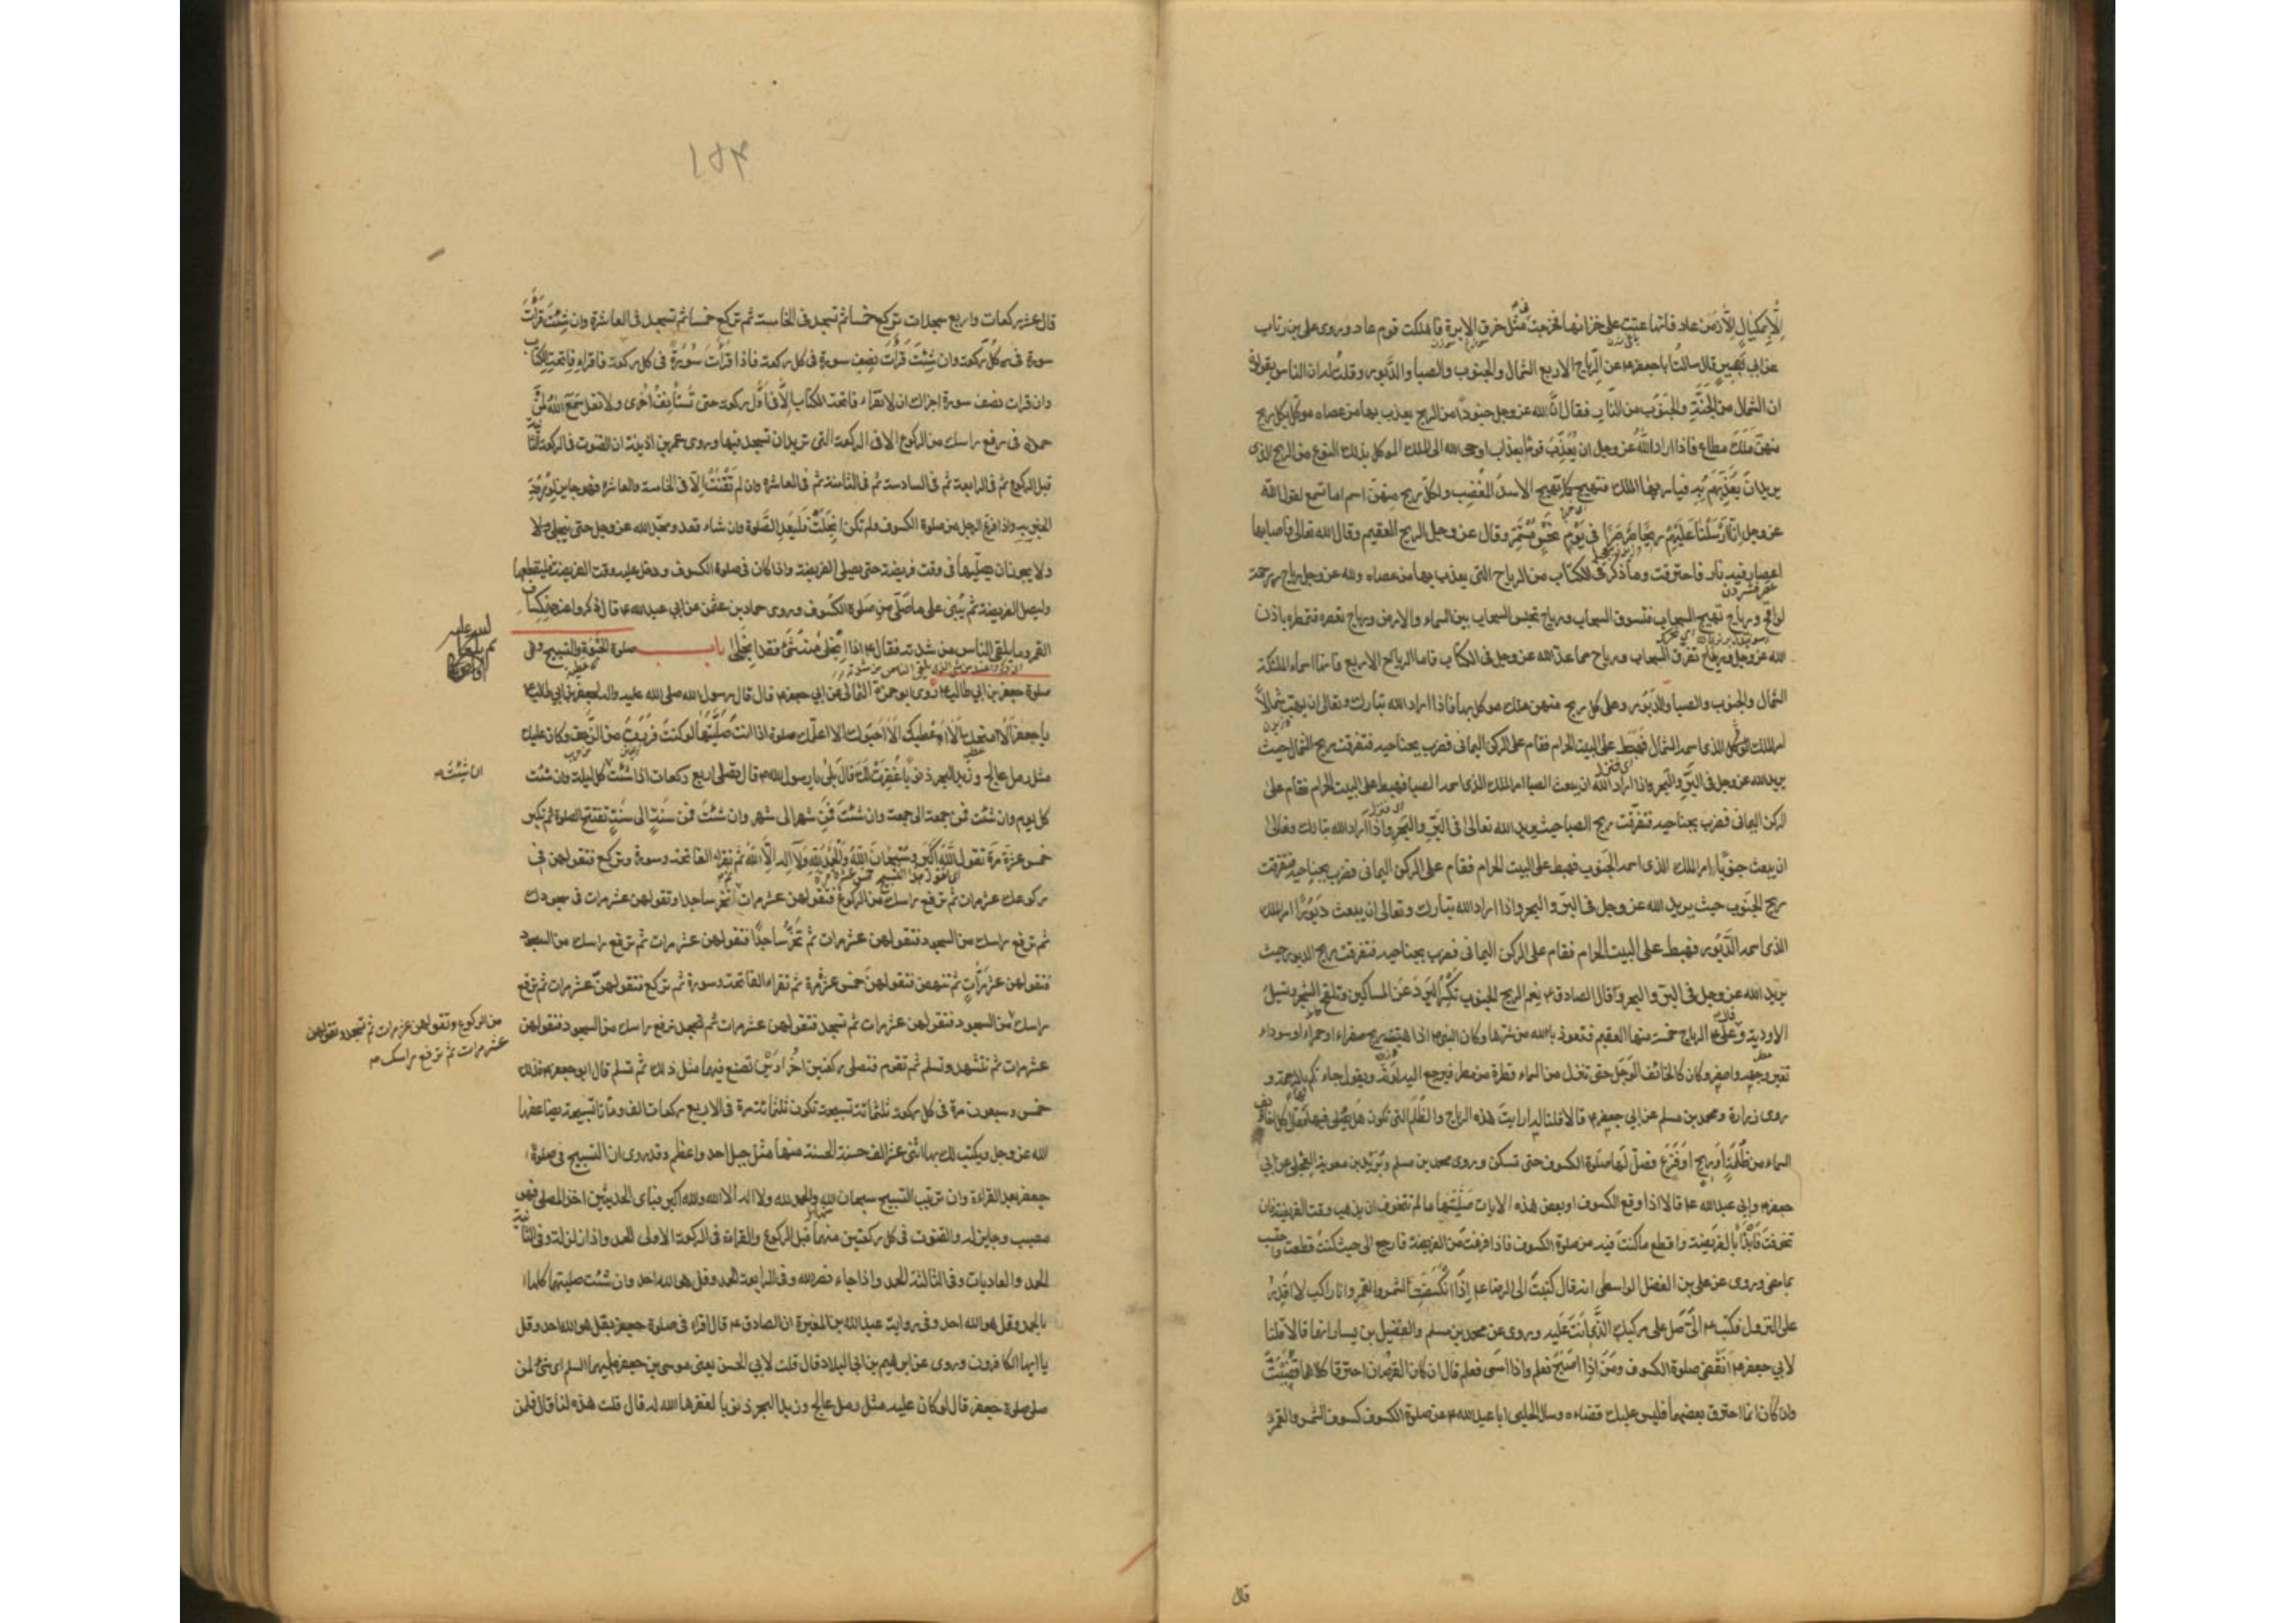 الا بمكيال الا زمن عاد فانها عتت على خزانها فخرجت في مثل خرق الابرة فاهلكت قوم عاد وروى علي بن رئاب
عن ابي بصير قال سالت ابا جعفر ع عن الرياح الاربع الشمال والجنوب والصبا والدبور وقلت له ان الناس يقولون
ان الشمال من الجنة والجنوب من النار فقال ان لله عز وجل جنودا من الريح يعذب بها من عصاه موكل بكل ريح
منهن ملك مطاع فاذا اراد الله عز وجل ان يعذب قوما بعذاب اوحى الله الى الملك الموكل بذلك النوع من الريح الذى
يريد ان يعذبهم به فيامرها الملك فتهيج كما تهيج الاسد المغضب ولكل ريح منهن اسم اما تسمع لقول الله
عز وجل انا ارسلنا عليهم ريحا صرصرا في يوم نحس مستمر وقال عز وجل الريح العقيم وقال الله تعالى فاصابها
اعصار فيه نار فاحترقت وما ذكر في الكتاب من الرياح التي يعذب بها من عصاه ولله عز وجل رياح رحمة
لواقح ورياح تهيج السحاب فتسوق السحاب ورياح تحبس السحاب بين السماء والارض ورياح تعصره فتمطره باذن
الله عز وجل ورياح تفرق السحاب ورياح مما عد الله عز وجل في الكتاب فاما الرياح الاربع فانها اسماء الملئكة
الشمال والجنوب والصبا والدبور وعلى كل ريح منهن ملك موكل بها فاذا اراد الله تبارك وتعالى ان يهب شمالا
امر الملك الذى اسمه الشمال فهبط على البيت الحرام فقام على الركن اليماني فضرب بجناحيه فتفرقت ريح الشمال حيث
يريد الله عز وجل في البر والبحر واذا اراد الله ان يبعث الصبا امر الملك الذى اسمه الصبا فهبط على البيت الحرام فقام على
الركن اليماني فضرب بجناحيه فتفرقت ريح الصبا حيث يريد الله تعالى في البر والبحر واذا اراد الله تبارك وتعالى
ان يبعث جنوبا امر الملك الذى اسمه الجنوب فهبط على البيت الحرام فقام على الركن اليماني فضرب بجناحيه فتفرقت
ريح الجنوب حيث يريد الله عز وجل في البر والبحر واذا اراد الله تبارك وتعالى ان يبعث دبورا امر الملك
الذى اسمه الدبور فهبط على البيت الحرام فقام على الركن اليماني فضرب بجناحيه فتفرقت ريح الدبور حيث
يريد الله عز وجل في البر والبحر وقال الصادق ع نعم الريح الجنوب تكسر البرد عن المساكين وتلقح الشجر وتسيل
الاودية وقال علي ع الرياح خمسة منها العقيم فنعوذ بالله من شرها وكان النبي ص اذا هبت ريح صفراء او حمراء او سوداء
تغير وجهه واصفر وكان كالخائف الوجل حتى تنزل من السماء قطرة من مطر فيرجع اليه لونه ويقول جاءتكم بالرحمة و
روى زرارة ومحمد بن مسلم عن ابي جعفر ع قالا قلنا له ارايت هذه الرياح والظلم التي تكون هل يصلى فيها فقال كل اخاويف
السماء من ظلمة او ريح او فزع فصل لها صلوة الكسوف حتى تسكن وروى محمد بن مسلم وبريد بن معوية العجلي عن ابي
جعفر وابي عبد الله ع قالا اذا وقع الكسوف او بعض هذه الايات صليتها ما لم تتخوف ان يذهب وقت الفريضة فان
تخوفت فابدا بالفريضة واقطع ما كنت فيه من صلوة الكسوف فاذا فرغت من الفريضة فارجع الى حيث كنت قطعت واحتسب
بما مضى وروى عن علي بن الفضل الواسطى انه قال كتبت الى الرضا ع اذا انكسفت الشمس والقمر وانا راكب لا اقدر
على النزول فكتب ع الي صل على مركبك الذى انت عليه وروى عن محمد بن مسلم والفضيل بن يسار انهما قالا قلنا
لابي جعفر ع انقضي صلوة الكسوف ومن اذا اصبح فعلم واذا امسى فعلم قال ان كان القرصان احترقا كلاهما قضيت
وان كان انما احترق بعضهما فليس عليك قضاءه وسال الحلبي ابا عبد الله ع عن صلوة الكسوف كسوف الشمس والقمر
قال
١٥٣
قال عشر ركعات واربع سجدات تركع خمسا ثم تسجد في الخامسة ثم تركع خمسا ثم تسجد في العاشرة وان شئت قرات
سورة في كل ركعة وان شئت قرات نصف سورة في كل ركعة فاذا قرات سورة في كل ركعة فاقراء فاتحة الكتاب
وان قرات نصف سورة اجزاك ان لا تقراء فاتحة الكتاب الا في اول ركعة حتى تستانف اخرى ولا تقل سمع الله لمن
حمده في رفع راسك من الركوع الا في الركعة التي تريد ان تسجد فيها وروى عمر بن اذينة ان القنوت في الركعة الثانية
قبل الركوع ثم في الرابعة ثم في السادسة ثم في الثامنة ثم في العاشرة وان لم تقنت الا في الخامسة والعاشرة فهو جايز لورود
الخبر به واذا فرغ الرجل من صلوة الكسوف ولم تكن انجلت فليعد الصلوة وان شاء قعد ومجد الله عز وجل حتى ينجلى ولا
ولا يجوز ان يصليها في وقت فريضة حتى يصلى الفريضة واذا كان في صلوة الكسوف ودخل عليه وقت الفريضة فليقطعها
وليصل الفريضة ثم يبنى على ما صلى من صلوة الكسوف وروى حماد بن عثمن عن ابي عبد الله ع قال ذكروا عنده انكساف
القمر وما يلقى الناس من شدته فقال ع اذا انجلى منه شئ فقد انجلى باب صلوة الحبوة والتسبيح وهي
صلوة جعفر بن ابي طالب ع روى ابو حمزة الثمالي عن ابي جعفر ع قال قال رسول الله صلى الله عليه واله لجعفر بن ابي طالب ع
يا جعفر الا امنحك الا اعطيك الا احبوك الا اعلمك صلوة اذا انت صليتها لو كنت فررت من الزحف وكان عليك
مثل رمل عالج وزبد البحر ذنوبا غفرت لك قال بلى يا رسول الله ص قال تصلى اربع ركعات اذا شئت كل ليلة وان شئت
ان شئت ص
كل يوم وان شئت فمن جمعة الى جمعة وان شئت فمن شهر الى شهر وان شئت فمن سنة الى سنة تفتتح الصلوة ثم تكبر
خمس عشرة مرة تقول الله اكبر وسبحان الله والحمد لله ولا اله الا الله ثم تقراء الفاتحة وسورة وتركع فتقولهن في
ركوعك عشر مرات ثم ترفع راسك من الركوع فتقولهن عشر مرات ثم تخر ساجدا وتقولهن عشر مرات في سجودك
ثم ترفع راسك من السجود فتقولهن عشر مرات ثم تخر ساجدا فتقولهن عشر مرات ثم ترفع راسك من السجود
فتقولهن عشر مرات ثم تنهض فتقولهن خمس عشرة مرة ثم تقراء الفاتحة وسورة ثم تركع فتقولهن عشر مرات ثم ترفع
من الركوع وتقولهن عشر مرات ثم تسجد وتقولهن
عشر مرات ثم ترفع راسك ص
راسك من السجود فتقولهن عشر مرات ثم تسجد فتقولهن عشر مرات ثم تسجد ثم ترفع راسك من السجود فتقولهن
عشر مرات ثم تتشهد وتسلم ثم تقوم فتصلى ركعتين اخراوين تصنع فيهما مثل ذلك ثم تسلم قال ابو جعفر ع فذلك
خمس وسبعون مرة في كل ركعة ثلثمائة تسبيحة تكون ثلثمائة مرة في الاربع ركعات الف ومائتا تسبيحة يضاعفها
الله عز وجل ويكتب لك بها اثنى عشر الف حسنة الحسنة منها مثل جبل احد واعظم وقد روى ان التسبيح في صلوة
جعفر بعد القراءة وان ترتيب التسبيح سبحان الله والحمد لله ولا اله الا الله والله اكبر فباى الحديثين اخذ المصلى فهو
مصيب وجايز له والقنوت في كل ركعتين منهما قبل الركوع والقراءة في الركعة الاولى الحمد واذا زلزلت وفي الثانية
الحمد والعاديات وفي الثالثة الحمد واذا جاء نصر الله وفي الرابعة الحمد وقل هو الله احد وان شئت صليتها كلها
بالحمد وقل هو الله احد وفي رواية عبد الله بن المغيرة ان الصادق ع قال اقراء في صلوة جعفر بقل هو الله احد وقل
يا ايها الكافرون وروى عن ابرهيم بن ابي البلاد قال قلت لابي الحسن يعنى موسى بن جعفر عليهما السلم اى شئ لمن
صلى صلوة جعفر قال لو كان عليه مثل رمل عالج وزبد البحر ذنوبا لغفرها الله له قال قلت هذه لنا قال فلمن